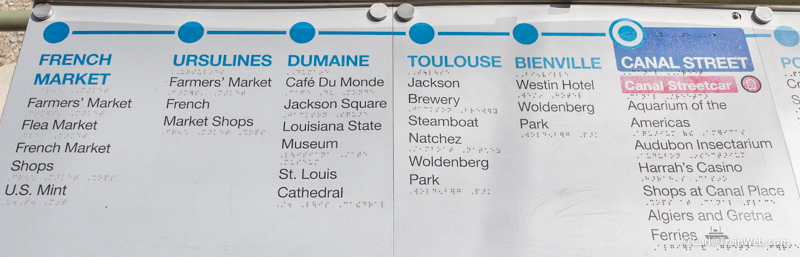 FRENCH
MARKET
Farmers' Market
Flea Market
French Market
Shops
U.S. Mint
URSULINES
Farmers' Market
French
Market Shops
DUMAINE
Café Du Monde
Jackson Square
Louisiana State
Museum
St. Louis
Cathedral
TOULOUSE
Jackson
Brewery
Steamboat
Natchez
Woldenberg
Park
BIENVILLE
Westin Hotel
Woldenberg
Park
CANAL STREET
Canal Streetcar
Aquarium of the
Americas
Audubon Insectarium
Harrah's Casino
Shops at Canal Place
Algiers and Gretna
Ferries